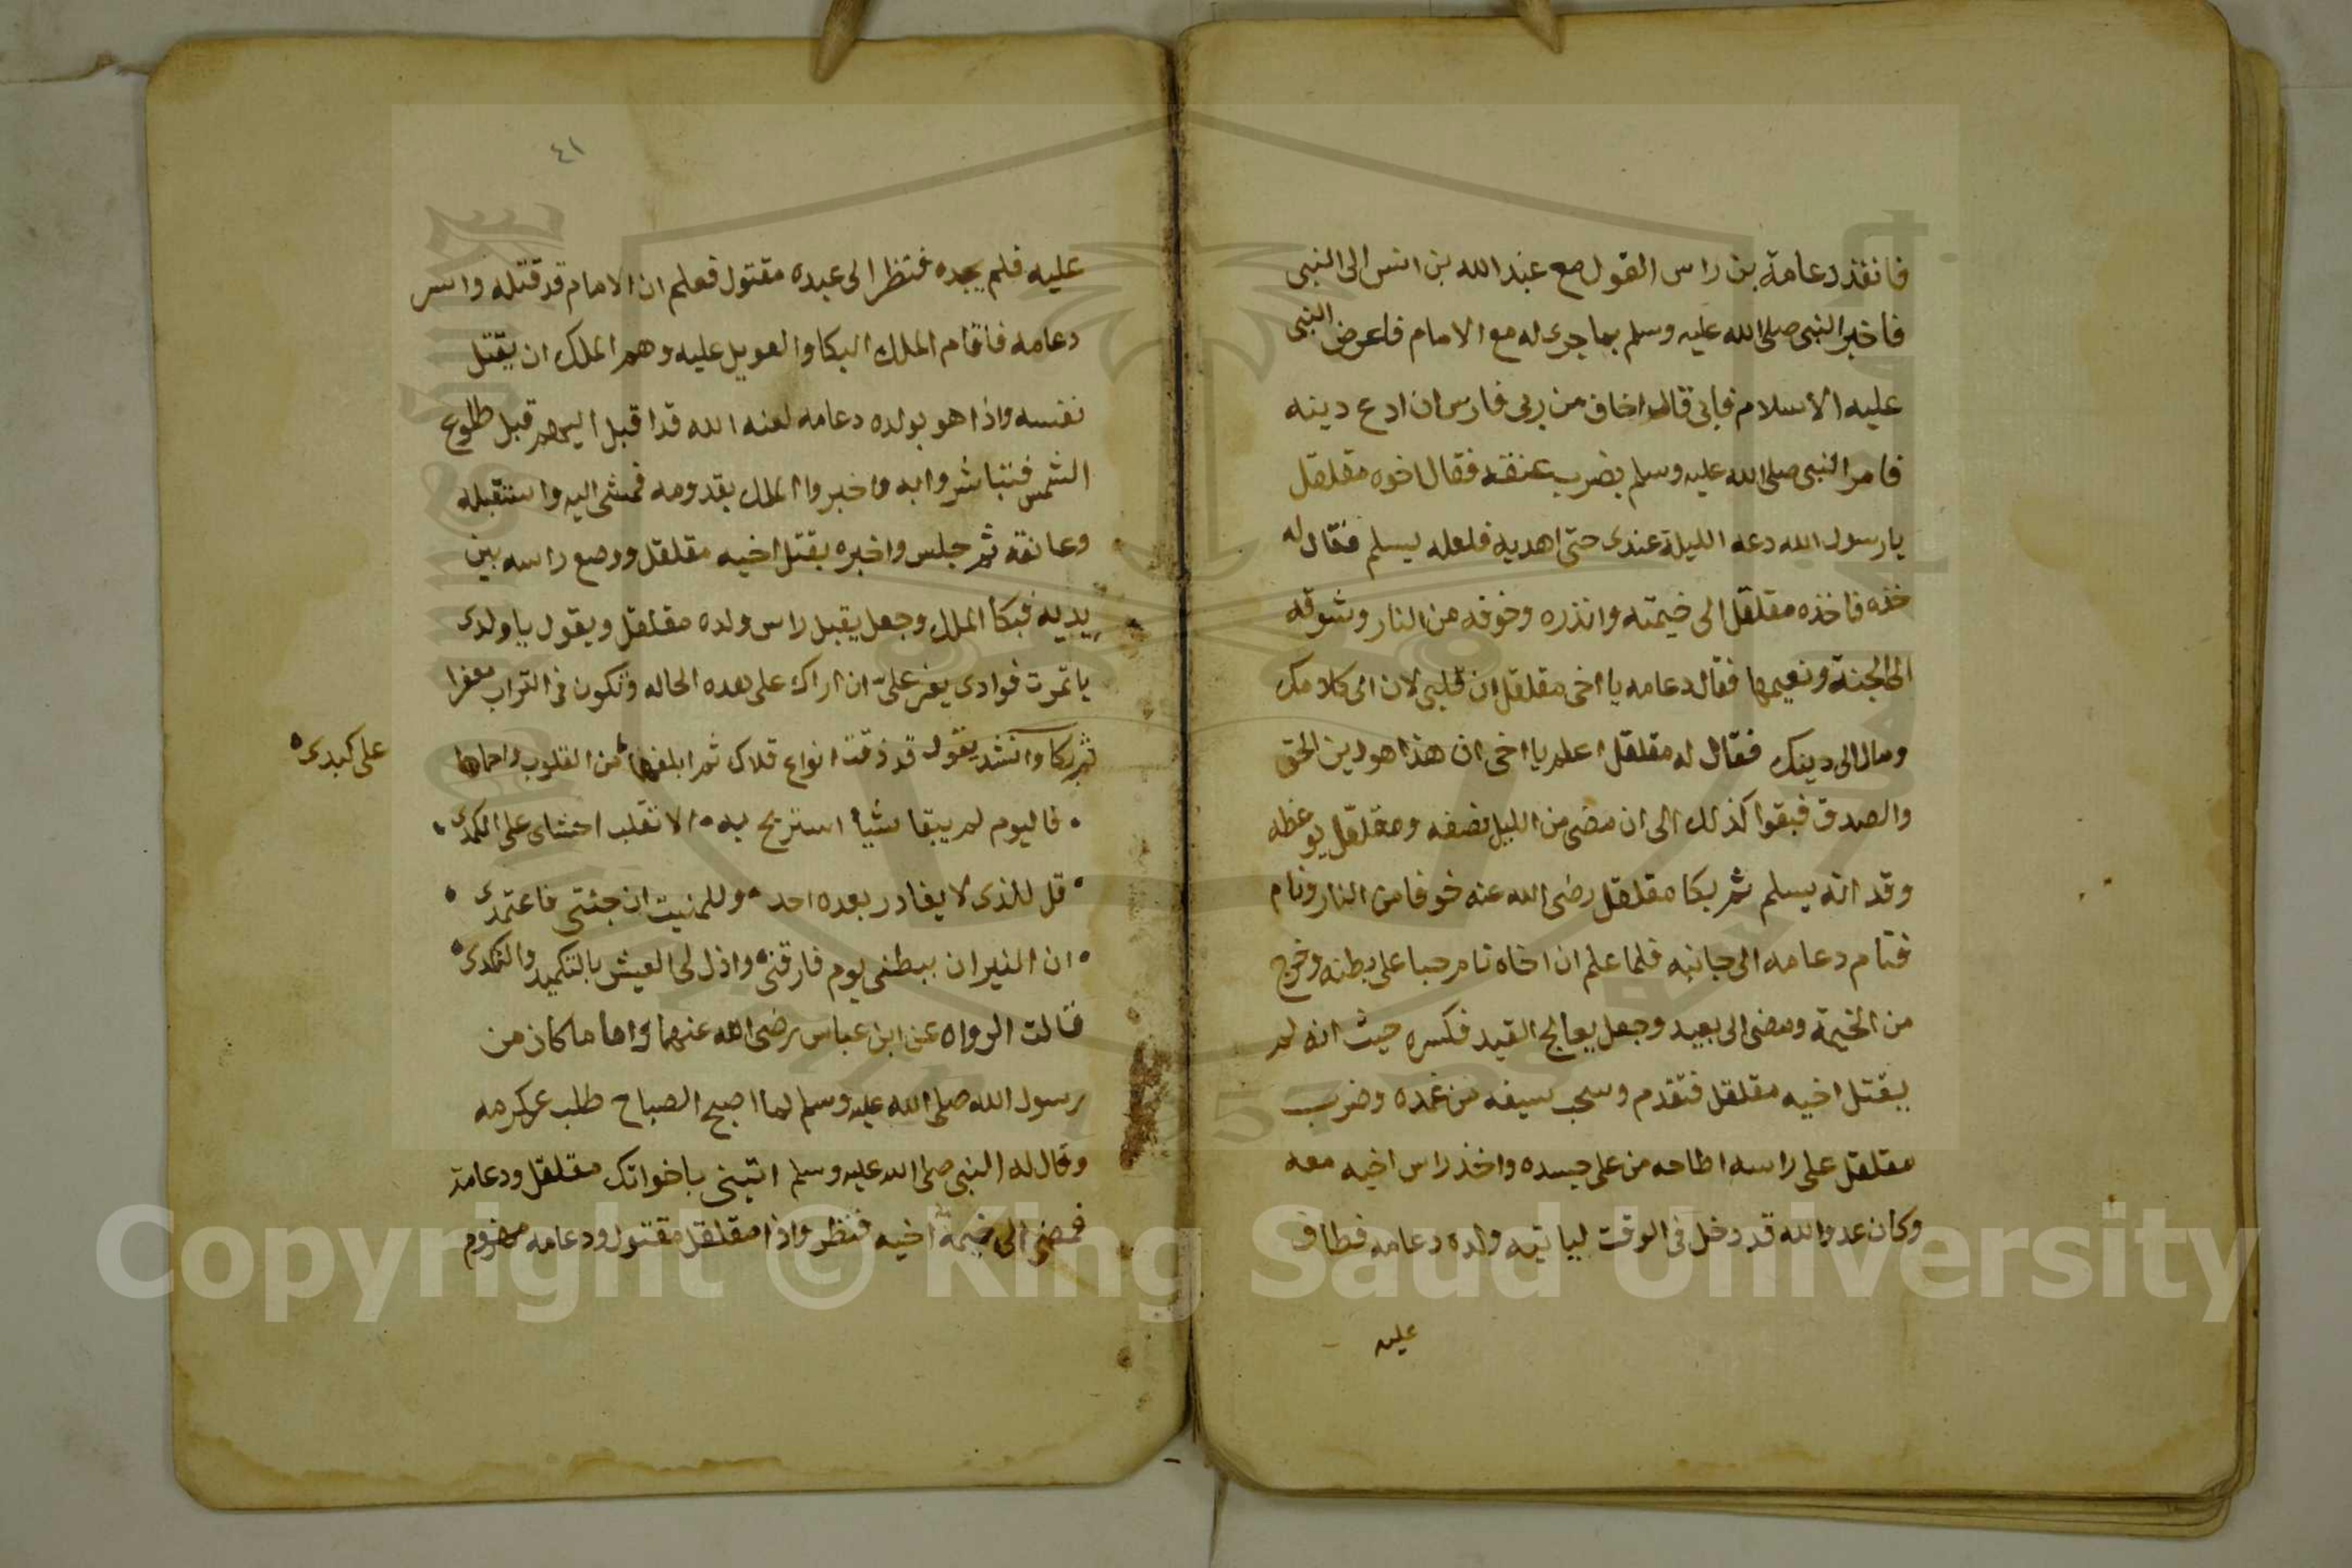 فانفذ دعامة بن راس الغول مع عبد الله بن انس الى النبى
فاخبر النبى صلى الله عليه وسلم بما جرى له مع الامام فاعرض النبى
عليه الاسلام فابى قال اخاف من ربى فارس ان ادع دينه
فامر النبى صلى الله عليه وسلم بضرب عنقه فقال اخوه مقلقل
يا رسول الله دعه الليلة عندى حتى اهديه فلعله يسلم فقال له
خذه فاخذه مقلقل الى خيمته وانذره وخوفه من النار وشوقه
الى الجنة ونعيمها فقال دعامه يا اخى مقلقل ان قلبى لان الى كلامك
ومال الى دينك فقال له مقلقل اعلم يا اخى ان هذا هو دين الحق
والصدق فبقوا كذلك الى ان مضى من الليل نصفه ومقلقل يوعظه
وقد انه يسلم ثم بكا مقلقل رضى الله عنه خوفا من النار ونام
فنام دعامه الى جانبه فلما علم ان اخاه نام حبا على بطنه وخرج
من الخيمة ومضى الى بعيد وجعل يعالج القيد فكسره حيث انه لم
يقتل اخيه مقلقل فتقدم وسحب سيفه من غمده وضرب
مقلقل على راسه اطاحه من على جسده واخذ راس اخيه معه
وكان عدو الله قد دخل فى الوقت لياتيه ولده دعامه فطاف
عليه
٤١
عليه فلم يجده فنظر الى عبده مقتول فعلم ان الامام قد قتله واسر
دعامه فاقام الملك البكا والعويل عليه وهم الملك ان يقتل
نفسه واذا هو بولده دعامه لعنه الله قد اقبل اليهم قبل طلوع
الشمس فتباشروا به واخبروا الملك بقدومه فمشى اليه واستقبله
وعانقه ثم جلس واخبره بقتل اخيه مقلقل ووضع راسه بين
يديه فبكا الملك وجعل يقبل راس ولده مقلقل ويقول يا ولدى
يا ثمرت فوادى يعز على ان اراك على هذه الحاله وتكون فى التراب معفرا
ثم بكا وانشد يقول قد ذقت انواع قلاك ثم ابلغها من القلوب واحماها
على كبدى
فاليوم لم يبقا شيأ استريح به الا تقلب احشاى على الكمدى
قل للذى لا يغادر بعده احد وللمنيت ان جئتى فاعتمدى
ان النيران ببطنى يوم فارقنى واذل لى العيش بالتكميد والنكدى
قالت الرواه عن ابن عباس رضى الله عنهما واما ما كان من
رسول الله صلى الله عليه وسلم لما اصبح الصباح طلب عركرمه
وقال له النبى صلى الله عليه وسلم اتينى باخوانك مقلقل ودعامة
فمضى الى خيمة اخيه فنظر واذا مقلقل مقتول ودعامه مهزوم